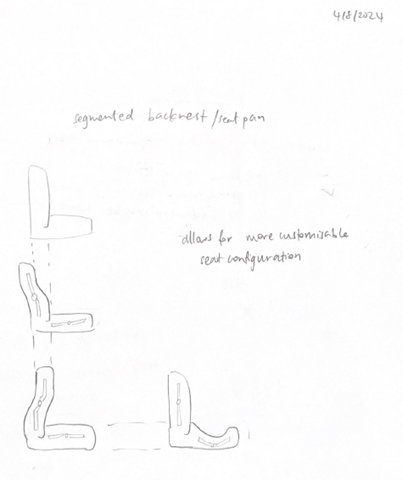 4/8/2024
segmented backrest/seat pan
allows for more customisable
seat configuration